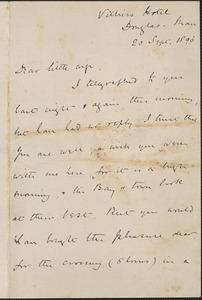 Villiers Hotel
Douglas - Man
20 Sept. 1896
Dear little
I telegraphed to you
last night & again this morning,
but have had no reply. I trust
you are well. I wish you were
with me here for it is a bright
morning, & the Bay & town look
at their best. But you would
have bought the pleasure dear
for the crossing (5 hours) in a